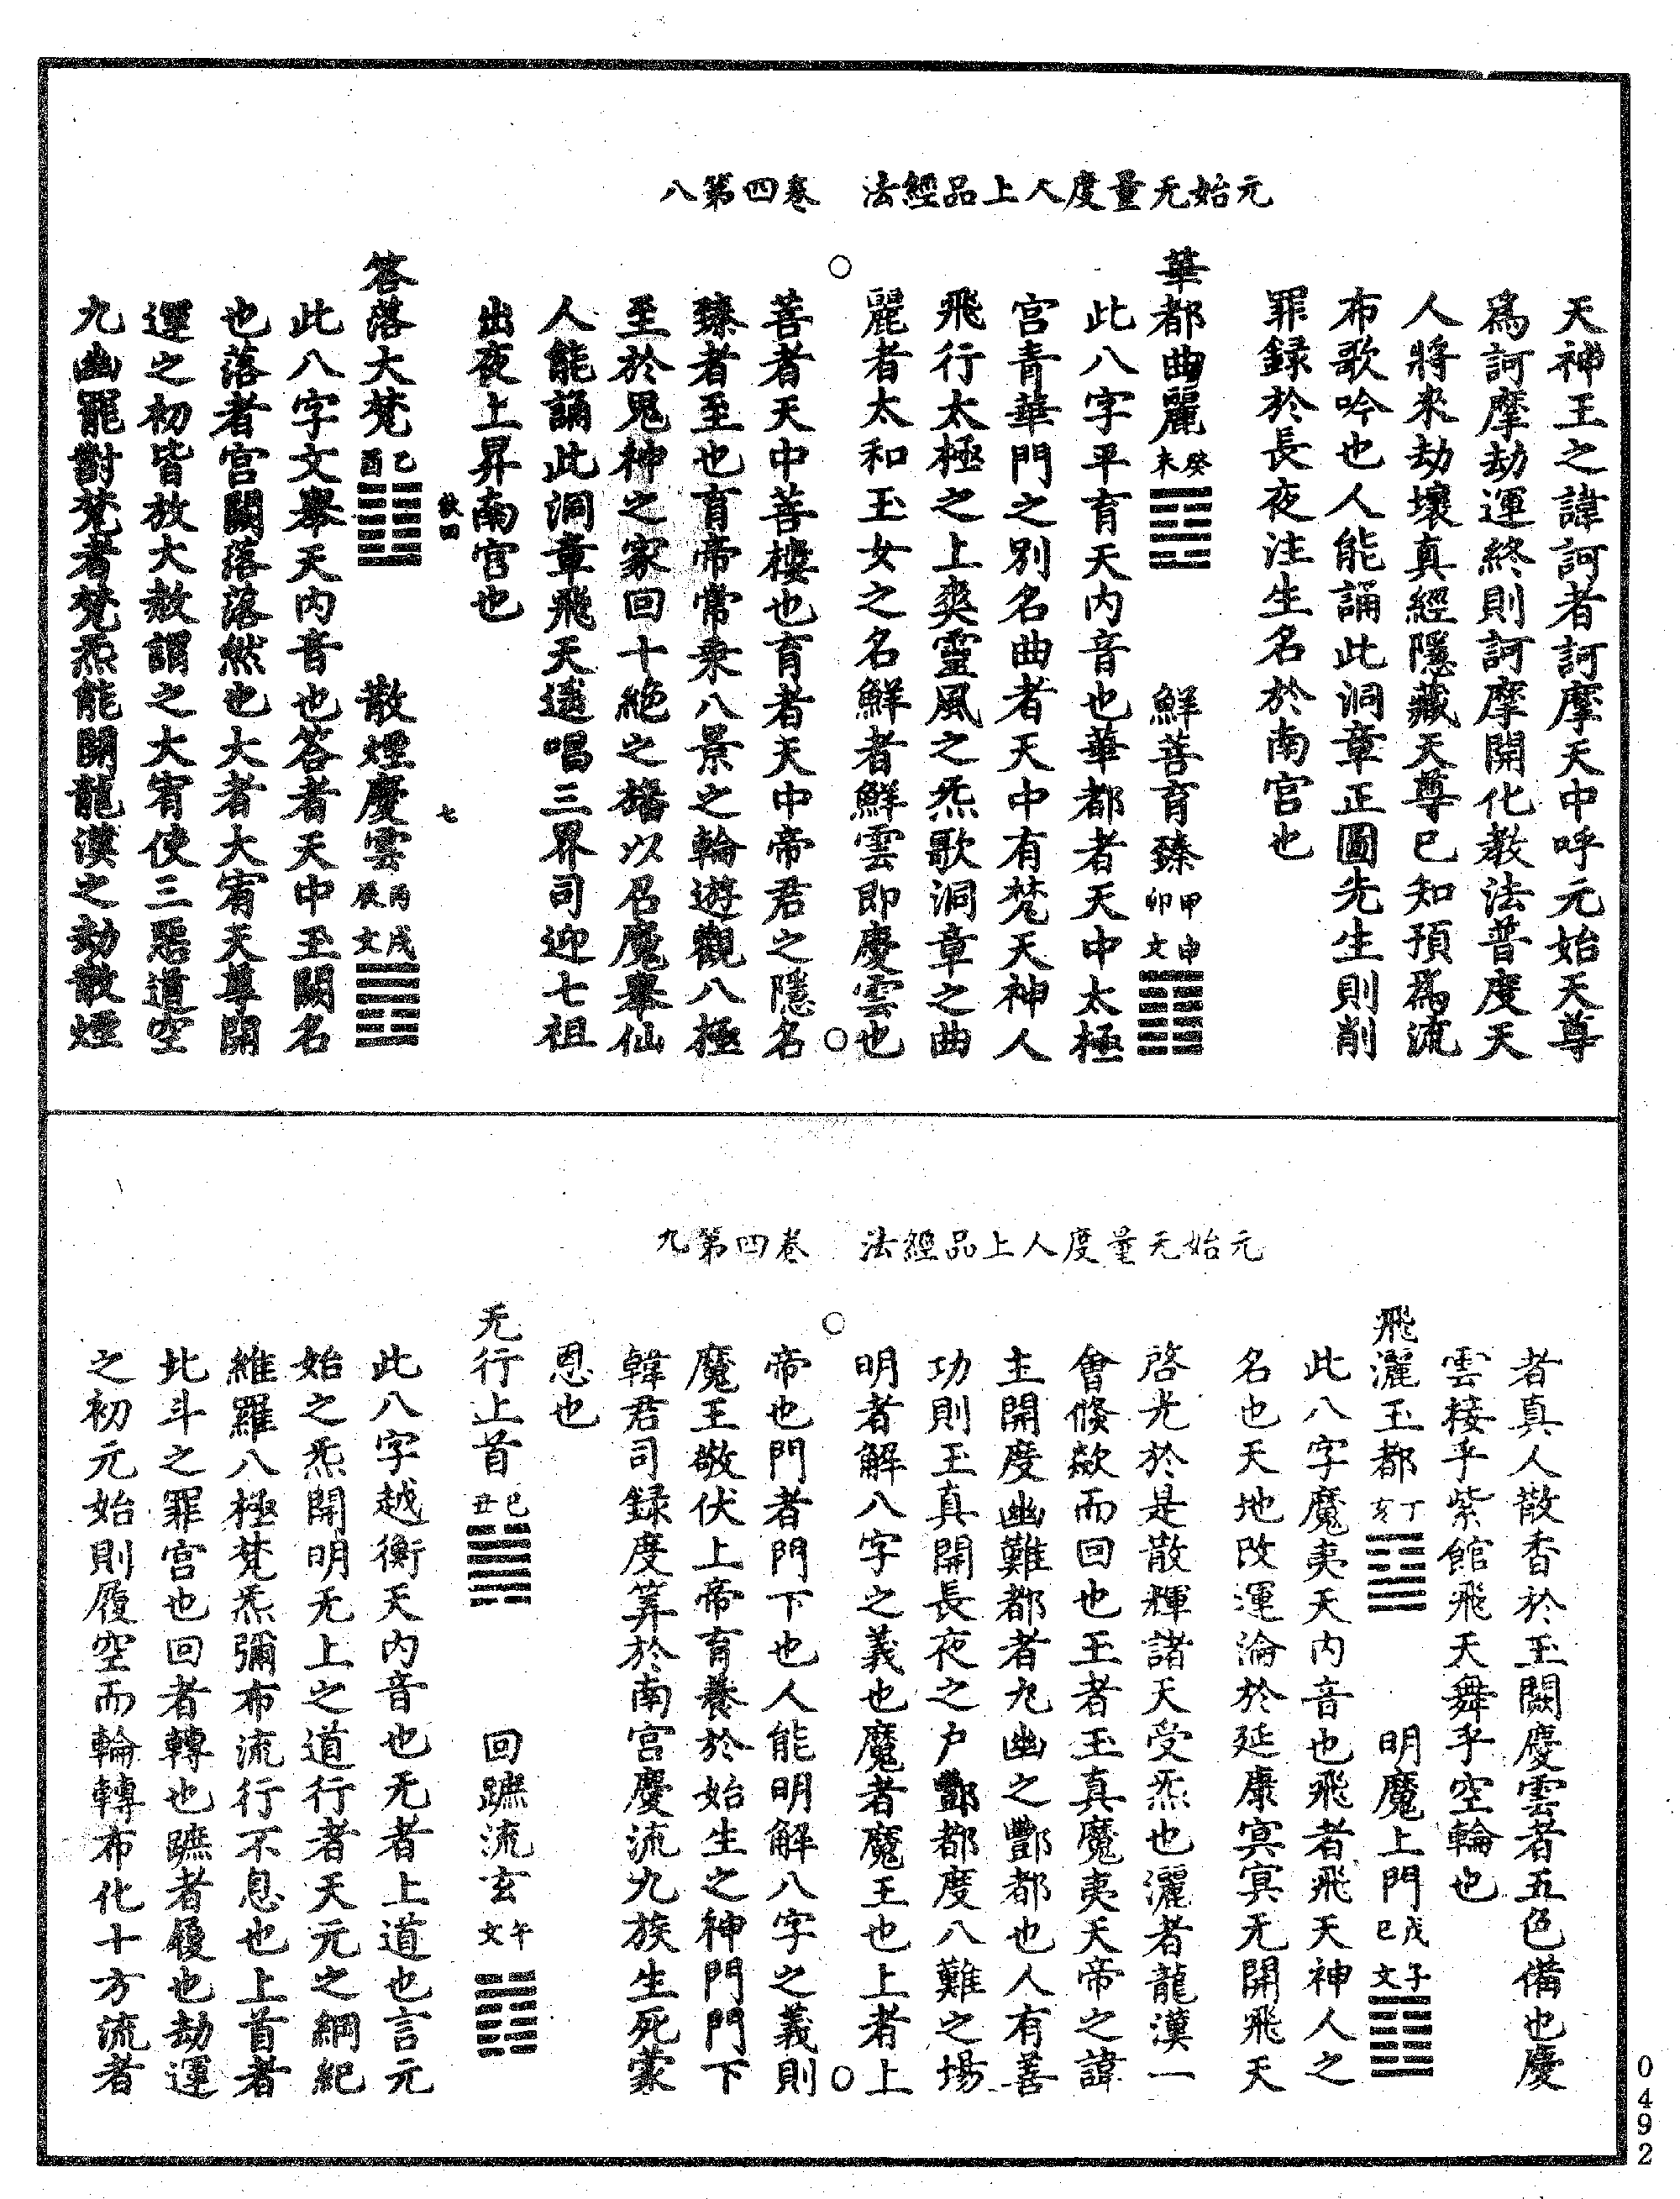 元始无量度人上品經法　卷四第八
天神王之諱訶者訶摩天中呼元始天尊
爲訶摩劫運終則訶摩開化教法普度天
人將來劫壞真經隱藏天尊已知預爲流
布歌吟也人能誦此洞章正圖先生則削
罪録於長夜注生名於南宫也
華都曲麗癸未　鮮菩育臻甲申卯文
此八字平育天内音也華都者天中太極
宫青華門之别名曲者天中有梵天神人
飛行太極之上奕靈風之炁歌洞章之曲
麗者太和玉女之名鮮者鮮雲即慶雲也
菩者天中菩樓也育者天中帝君之隱名
臻者至也育帝常乘八景之輪遊觀八極
至於鬼神之家回十絶之旛以召魔舉仙
人能誦此洞章飛天遥唱三界司迎七祖
出夜上昇南宫也
四　七
答落大梵乙酉　散煙慶雲丙戌辰文
此八字文舉天内音也答者天中玉闕名
也落者宫闕落落然也大者大宥天尊開
運之初皆放大赦謂之大宥使三惡道空
九幽罷對梵者梵炁能開龍漢之劫散煙
元始无量度人上品經法　卷四第九
者真人散香於玉闕慶雲者五色備也慶
雲接乎紫館飛天舞乎空輪也
飛灑玉都丁亥　明魔上門戊子巳文
此八字魔夷天内音也飛者飛天神人之
名也天地改運淪於延康冥冥无開飛天
啓光於是散輝諸天受炁也灑者龍漢一
會倏歘而回也玉者玉真魔夷天帝之諱
主開度幽難都者九幽之酆都也人有善
功則玉真開長夜之户酆都度八難之場
明者解八字之義也魔者魔王也上者上
帝也門者門下也人能明解八字之義則
魔王敬伏上帝育養於始生之神門門下
韓君司録度筭於南宫慶流九族生死蒙
恩也
无行上首巳丑　回蹠流玄午文
此八字越衡天内音也无者上道也言元
始之炁開明无上之道行者天元之綱紀
維羅八極梵炁彌布流行不息也上首者
北斗之罪宫也回者轉也蹠者履也劫運
之初元始則履空而輪轉布化十方流者
0492